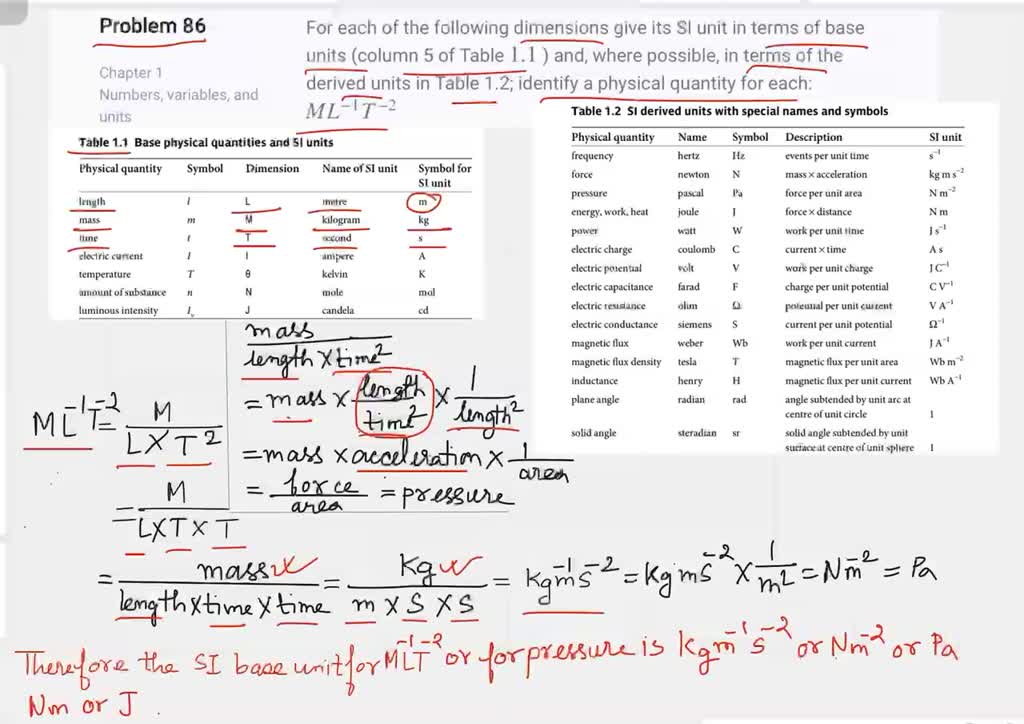 Problem 86
Chapter 1
Numbers, variables, and
units
For each of the following dimensions give its SI unit in terms of base
units (column 5 of Table 1.1 ) and, where possible, in terms of the
derived units in Table 1.2; identify a physical quantity for each:
ML⁻¹T⁻²
Table 1.1 Base physical quantities and SI units
Physical quantity Symbol Dimension Name of SI unit Symbol for SI unit
length l L metre m
mass m M kilogram kg
time t T second s
electric current I I ampere A
temperature T θ kelvin K
amount of substance n N mole mol
luminous intensity Iᵥ J candela cd
Table 1.2 SI derived units with special names and symbols
Physical quantity Name Symbol Description SI unit
frequency hertz Hz events per unit time s⁻¹
force newton N mass × acceleration kg m s⁻²
pressure pascal Pa force per unit area N m⁻²
energy, work, heat joule J force × distance N m
power watt W work per unit time J s⁻¹
electric charge coulomb C current × time A s
electric potential volt V work per unit charge J C⁻¹
electric capacitance farad F charge per unit potential C V⁻¹
electric resistance ohm Ω potential per unit current V A⁻¹
electric conductance siemens S current per unit potential Ω⁻¹
magnetic flux weber Wb work per unit current J A⁻¹
magnetic flux density tesla T magnetic flux per unit area Wb m⁻²
inductance henry H magnetic flux per unit current Wb A⁻¹
plane angle radian rad angle subtended by unit arc at
centre of unit circle 1
solid angle steradian sr solid angle subtended by unit
surface at centre of unit sphere 1
mass
length × time²
= mass × length/time² × 1/length²
= mass × acceleration × 1/area
= force/area = pressure
ML⁻¹T⁻² = M/L×T²
= M/L×T×T
= mass/length×time×time = Kg/m×S×S = Kgm⁻¹S⁻² = KgmS⁻² × 1/m² = Nm⁻² = Pa
Therefore the SI base unit for ML⁻¹T⁻² or for pressure is Kgm⁻¹S⁻² or Nm⁻² or Pa
Nm or J.